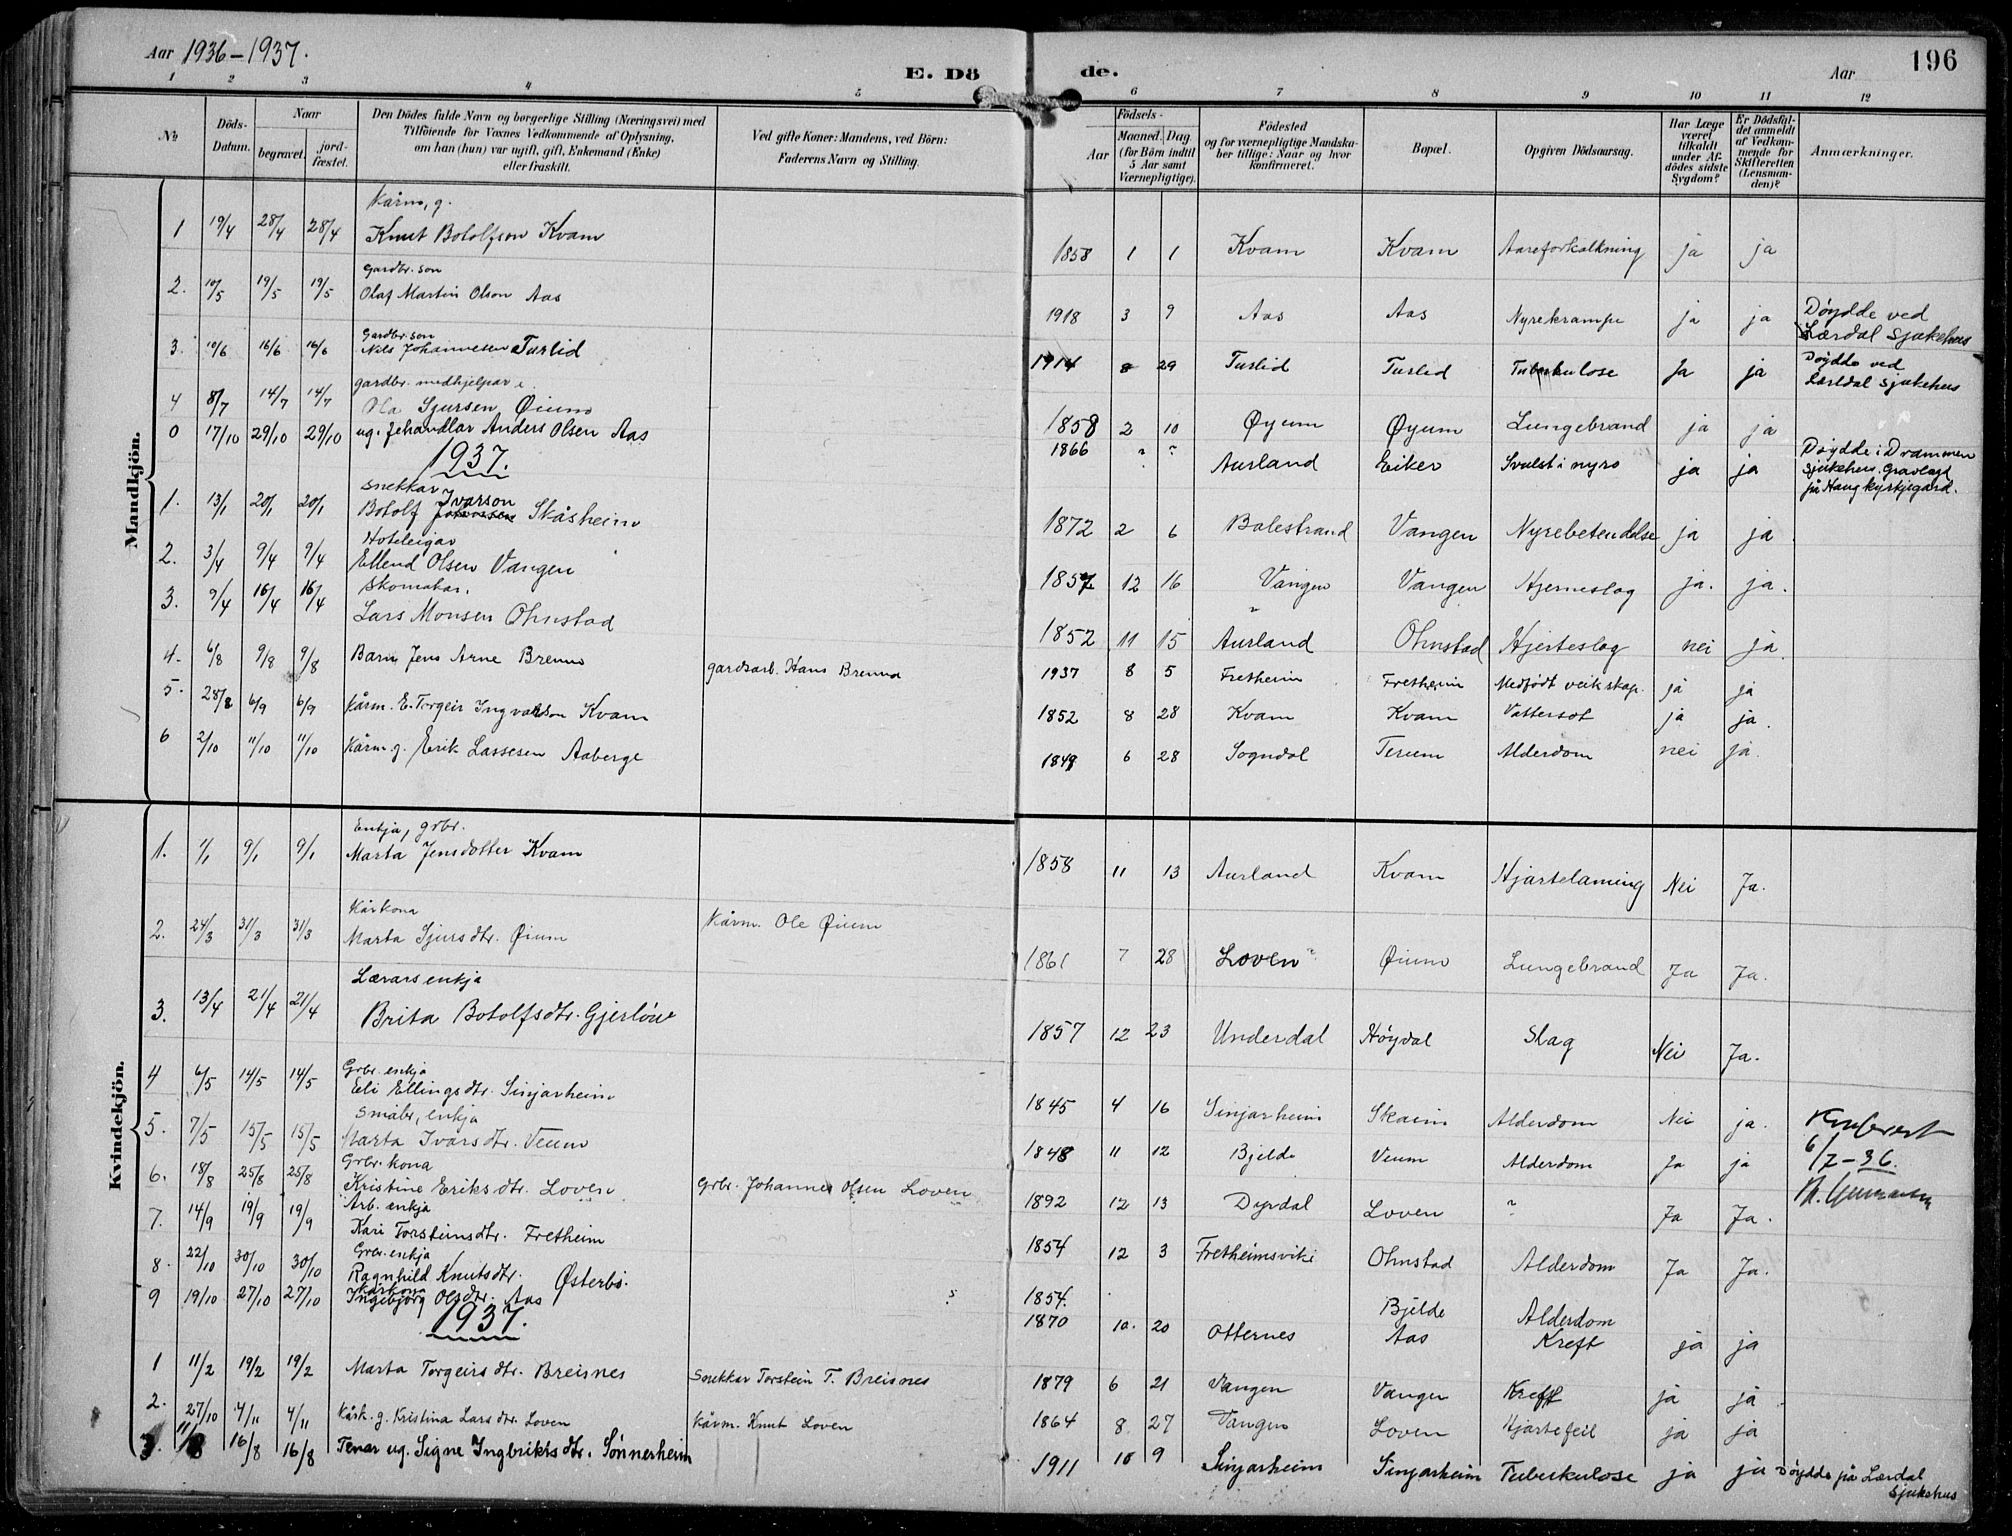 Aar 1936-1937.
E. Dö de.
Aar 196
1 2 3 4 5 6 7 8 9 10 11 12
No.
Döds-Datum.
Naar
begravet.
jord-fæstet.
Den Dödes fulde Navn og borgerlige Stilling (Næringsvei) med
Tilföiende for Voxnes Vedkommende af Oplysning,
om han (hun) var ugift, gift, Enkemand (Enke)
eller fraskilt.
Ved gifte Koner: Mandens, ved Börn:
Faderens Navn og Stilling.
Födsels-
Aar
Maaned.
Dag
(for Börn indtil
5 Aar samt
Værnepligtige).
Födested
og for værnepligtige Mandska-
ber tillige: Naar og hvor
konfirmeret.
Bopæl.
Opgiven Dödsaarsag.
Har Læge
været
tilkaldt
under Af-
dödes sidste
Sygdom?
Er Dödsfal-
det anmeldt
af Vedkom-
mende for
Skifteretten
(Lensman-
den)?
Anmærkninger.
Mandkjön.
Kårm, g.
1 19/4 28/4 28/4 Knut Botolfson Kvam 1858 1 1 Kvam Kvam Aareforkalkning ja ja
Gardbr. son
2. 10/5 19/5 19/5 Olaf Martin Olson Aas 1918 3 9 Aas Aas Nyrekrampe ja ja Döydde ved Lærdal Sjukehus
Gardbr. son
3. 10/6 16/6 16/6 Nils Johannesen Turlid 1914 8 29 Turlid Turlid Tuberkulose Ja ja Döydde ved Lærdal Sjukehus
gardbr. medhjelpar
4 8/7 14/7 14/7 Ola Sjursen Øium 1858 2 10 Øyum Øyum Lungebrand ja ja
0 17/10 29/10 29/10 ug. Jehandlar Anders Olsen Aas 1866 " " Aurland Eiker Svulst i nyro ja ja Døydde i Drammen Sjukehus. Gravlagd på Haug kyrkjegard.
1937.
Snekkar Ivarson
1. 13/1 20/1 20/1 Botolf Skåsheim 1872 2 6 Balestrand Vangen Nyrebetendelse ja ja
Hoteleigar
2. 3/4 9/4 9/4 Ellend Olsen Vangen 1857 12 16 Vangen Vangen Hjerneslag ja. ja.
Skomakar.
3. 9/4 16/4 16/4 Lars Monsen Ohnstad 1852 11 15 Aurland Ohnstad Hjerteslag nei ja
4. 6/8 9/8 9/8 Barn Jens Arne Brenno gardsarb. Hans Brenna 1937 8 5 Fretheim Fretheim Medfödt veikskap. ja ja
5. 28/8 6/9 6/9 Kårm. E. Torgeir Ingvarson Kvam 1852 8 28 Kvam Kvam Vattersot ja ja.
6 2/10 11/10 11/10 Kårm. g. Erik Lassesen Aaberge 1849 6 28 Sogndal Terum Alderdom nei ja
Kvindekjön.
Enkja, grbr.
1. 1/1 9/1 9/1 Marta Jensdotter Kvam 1858 11 13 Aurland Kvam Hjartelaming Nei Ja.
Kårkona
2. 24/3 31/3 31/3 Marta Sjursdtr. Øium Kårm. Ole Øium 1861 7 28 Loven Øium Lungebrand Ja Ja.
Lærarsenkja
3. 13/4 21/4 21/4 Brita Botolfsdtr. Gjerløw 1857 12 23 Underdal Høydal Slag Nei Ja.
Grbr. enkja
4 6/5 14/5 14/5 Eli Ellingsdtr. Sinjarheim 1845 4 16 Sinjarheim Skaim Alderdom Nei ja.
Småbr. enkja
5. 7/5 15/5 15/5 Marta Ivarsdtr. Veum 1848 11 12 Bjelde Veum Alderdom Ja ja
6/7-36.
Grbr. kona
6. 18/8 25/8 25/8 Kristine Eriksdtr. Loven Grbr. Johannes Olsen Loven 1892 12 13 Dyrdal Loven " Ja Ja.
Arb. enkja
7. 14/9 19/9 19/9 Kari Torsteinsdtr. Fretheim 1854 12 3 Fretheimsviki Ohnstad Alderdom Ja Ja.
Grbr. enkja
8. 22/10 30/10 30/10 Ragnhild Knutsdtr. Østerbö. 1854. Bjelde Alderdom
Kårkona
9 19/10 27/10 27/10 Ingebjörg Olsdtr. Aas 1870 10. 20 Otternes Aas Kreft ja ja
1937.
1 11/2 19/2 19/2 Marta Torgeirsdtr. Breisnes Snekkar Torstein T. Breisnes 1879 6 21 Vangen Vangen Kreft ja ja
2. 27/10 4/11 4/11 Kårk. g. Kristina Larsdtr. Loven Kårm. Knut Loven 1864 8 27 Vangen Loven Hjartefeil ja ja
3. 11/8 16/8 16/8 Tenar ug. Signe Ingbriktsdtr. Sønnerheim 1911 10 9 Sinjarheim Sinjarheim Tuberkulose ja ja Döydde på Lærdal Sjukehus